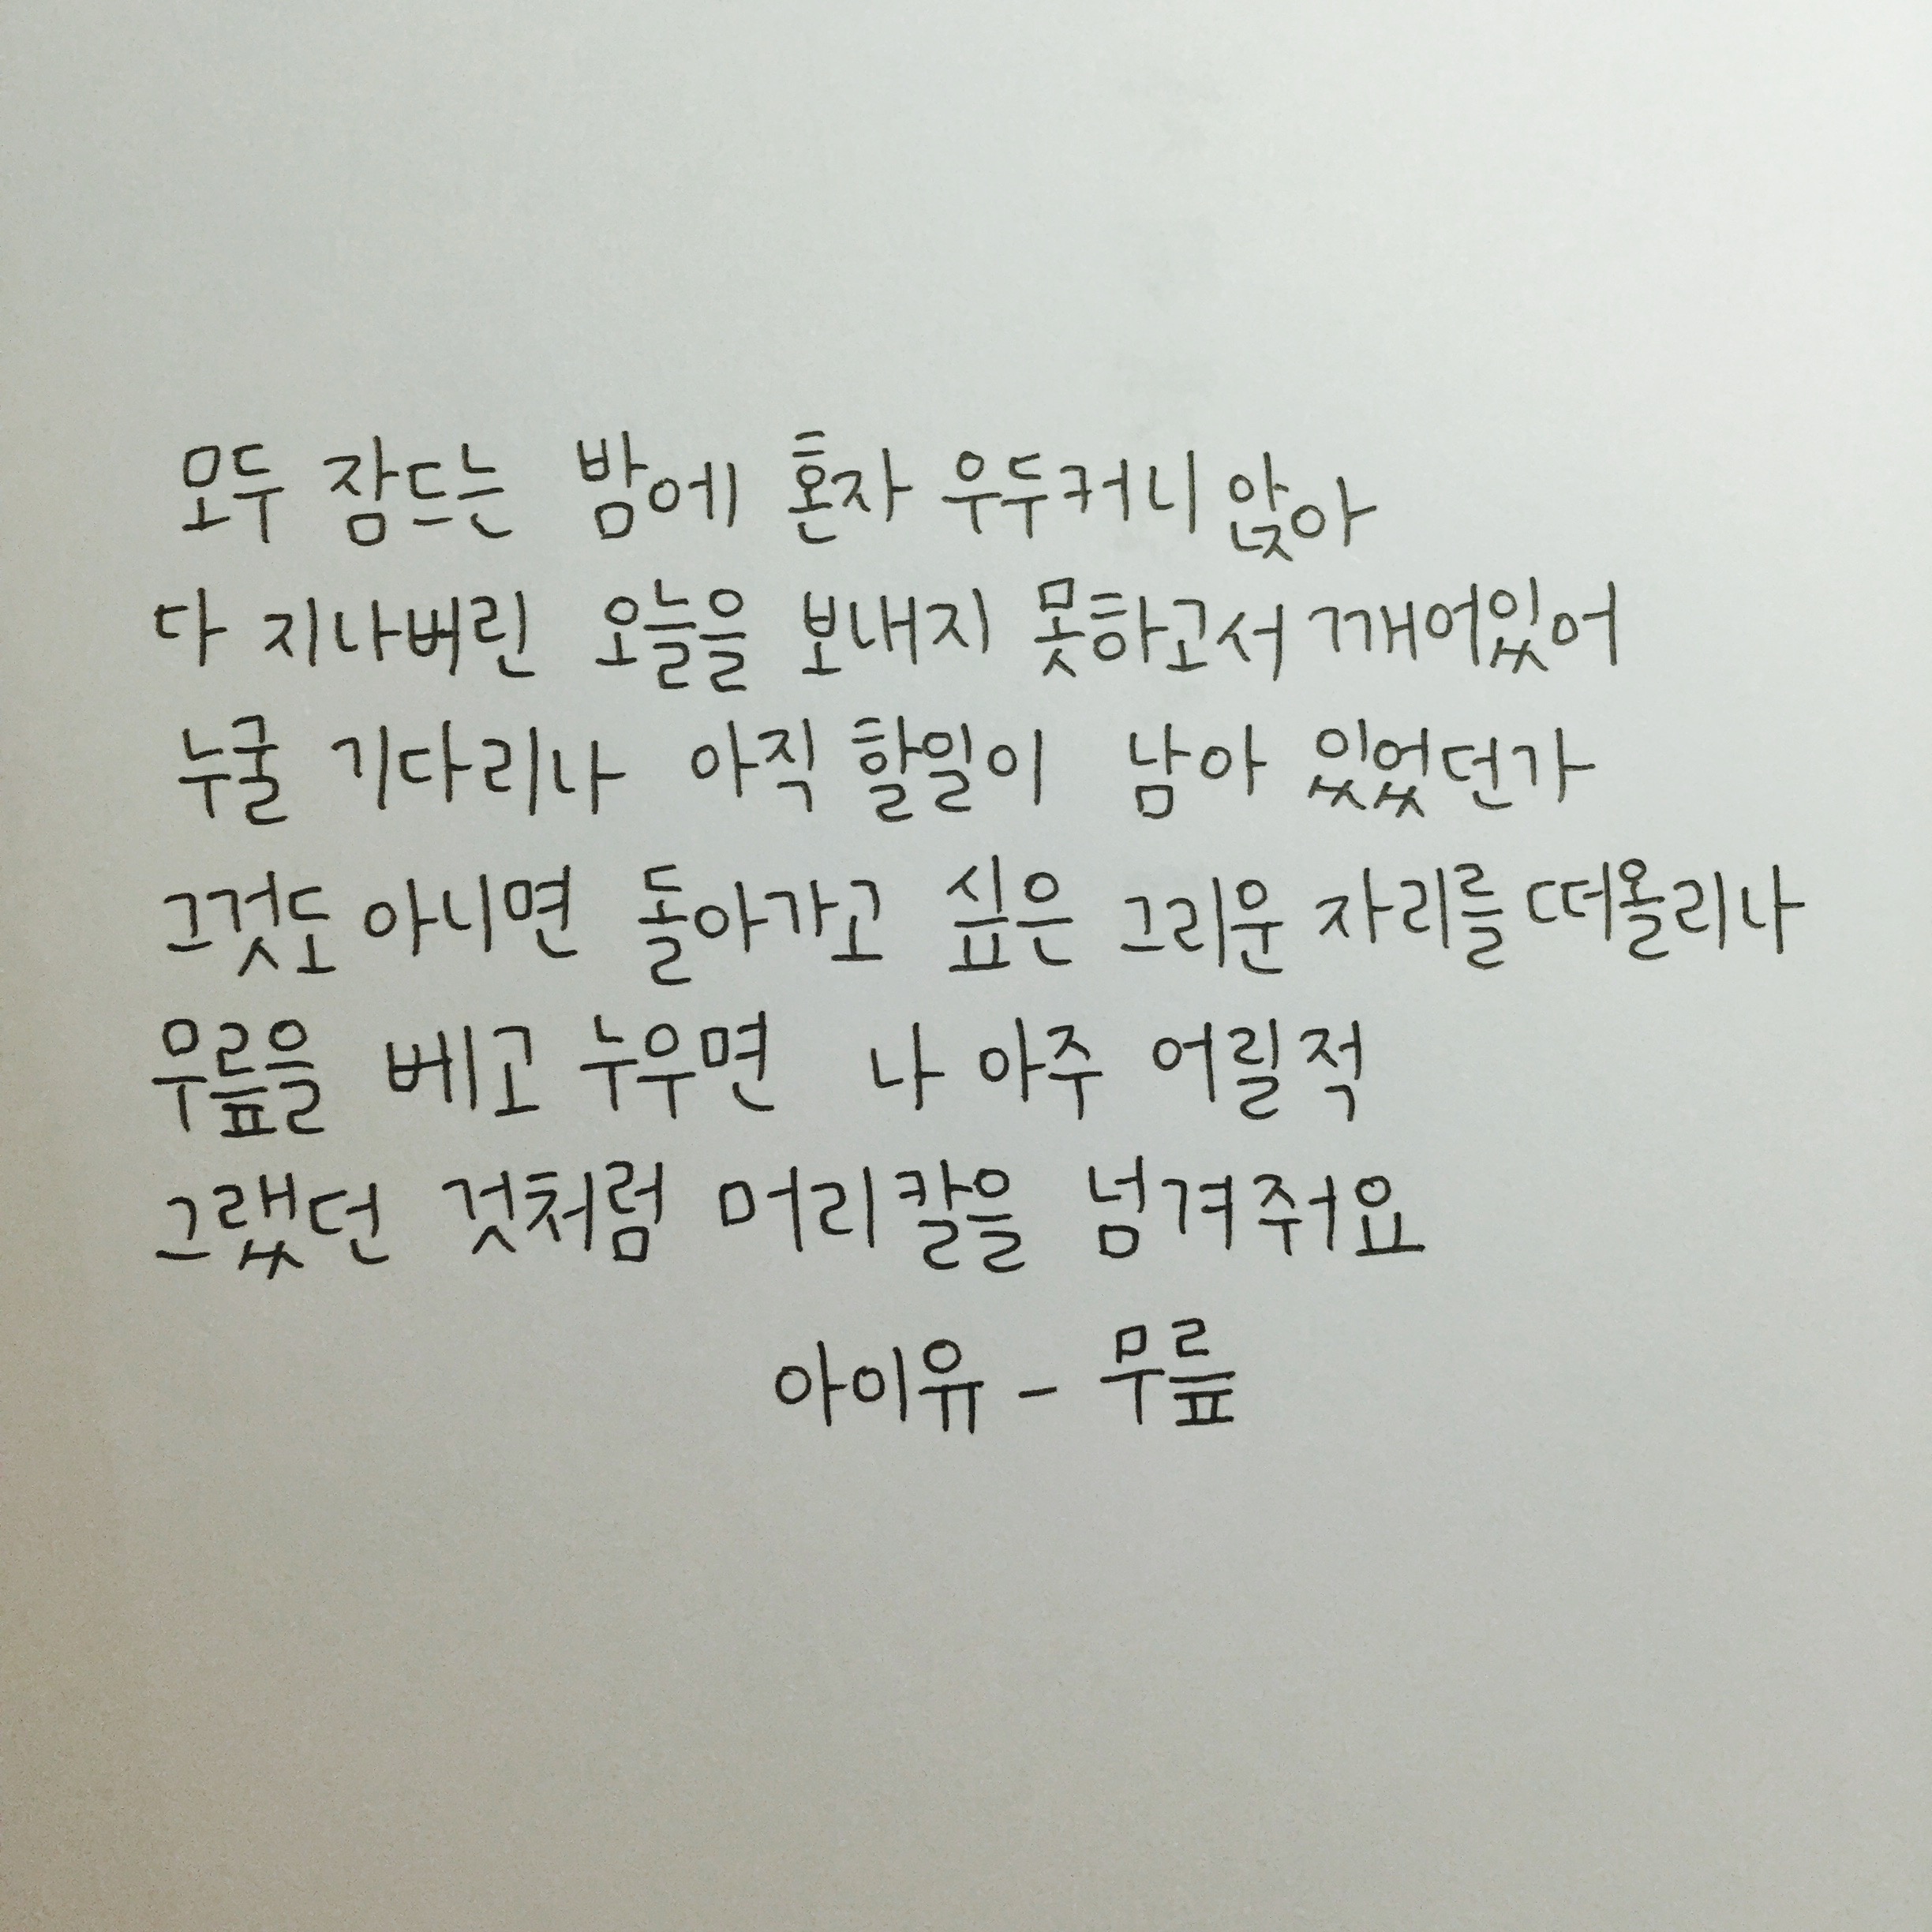 모두 잠드는 밤에 혼자 우두커니 앉아
다 지나버린 오늘을 보내지 못하고서 깨어있어
누굴 기다리나 아직 할일이 남아 있었던가
그것도 아니면 돌아가고 싶은 그리운 자리를 떠올리나
무릎을 베고 누우면 나 아주 어릴적
그랬던 것처럼 머리칼을 넘겨줘요
아이유 - 무릎